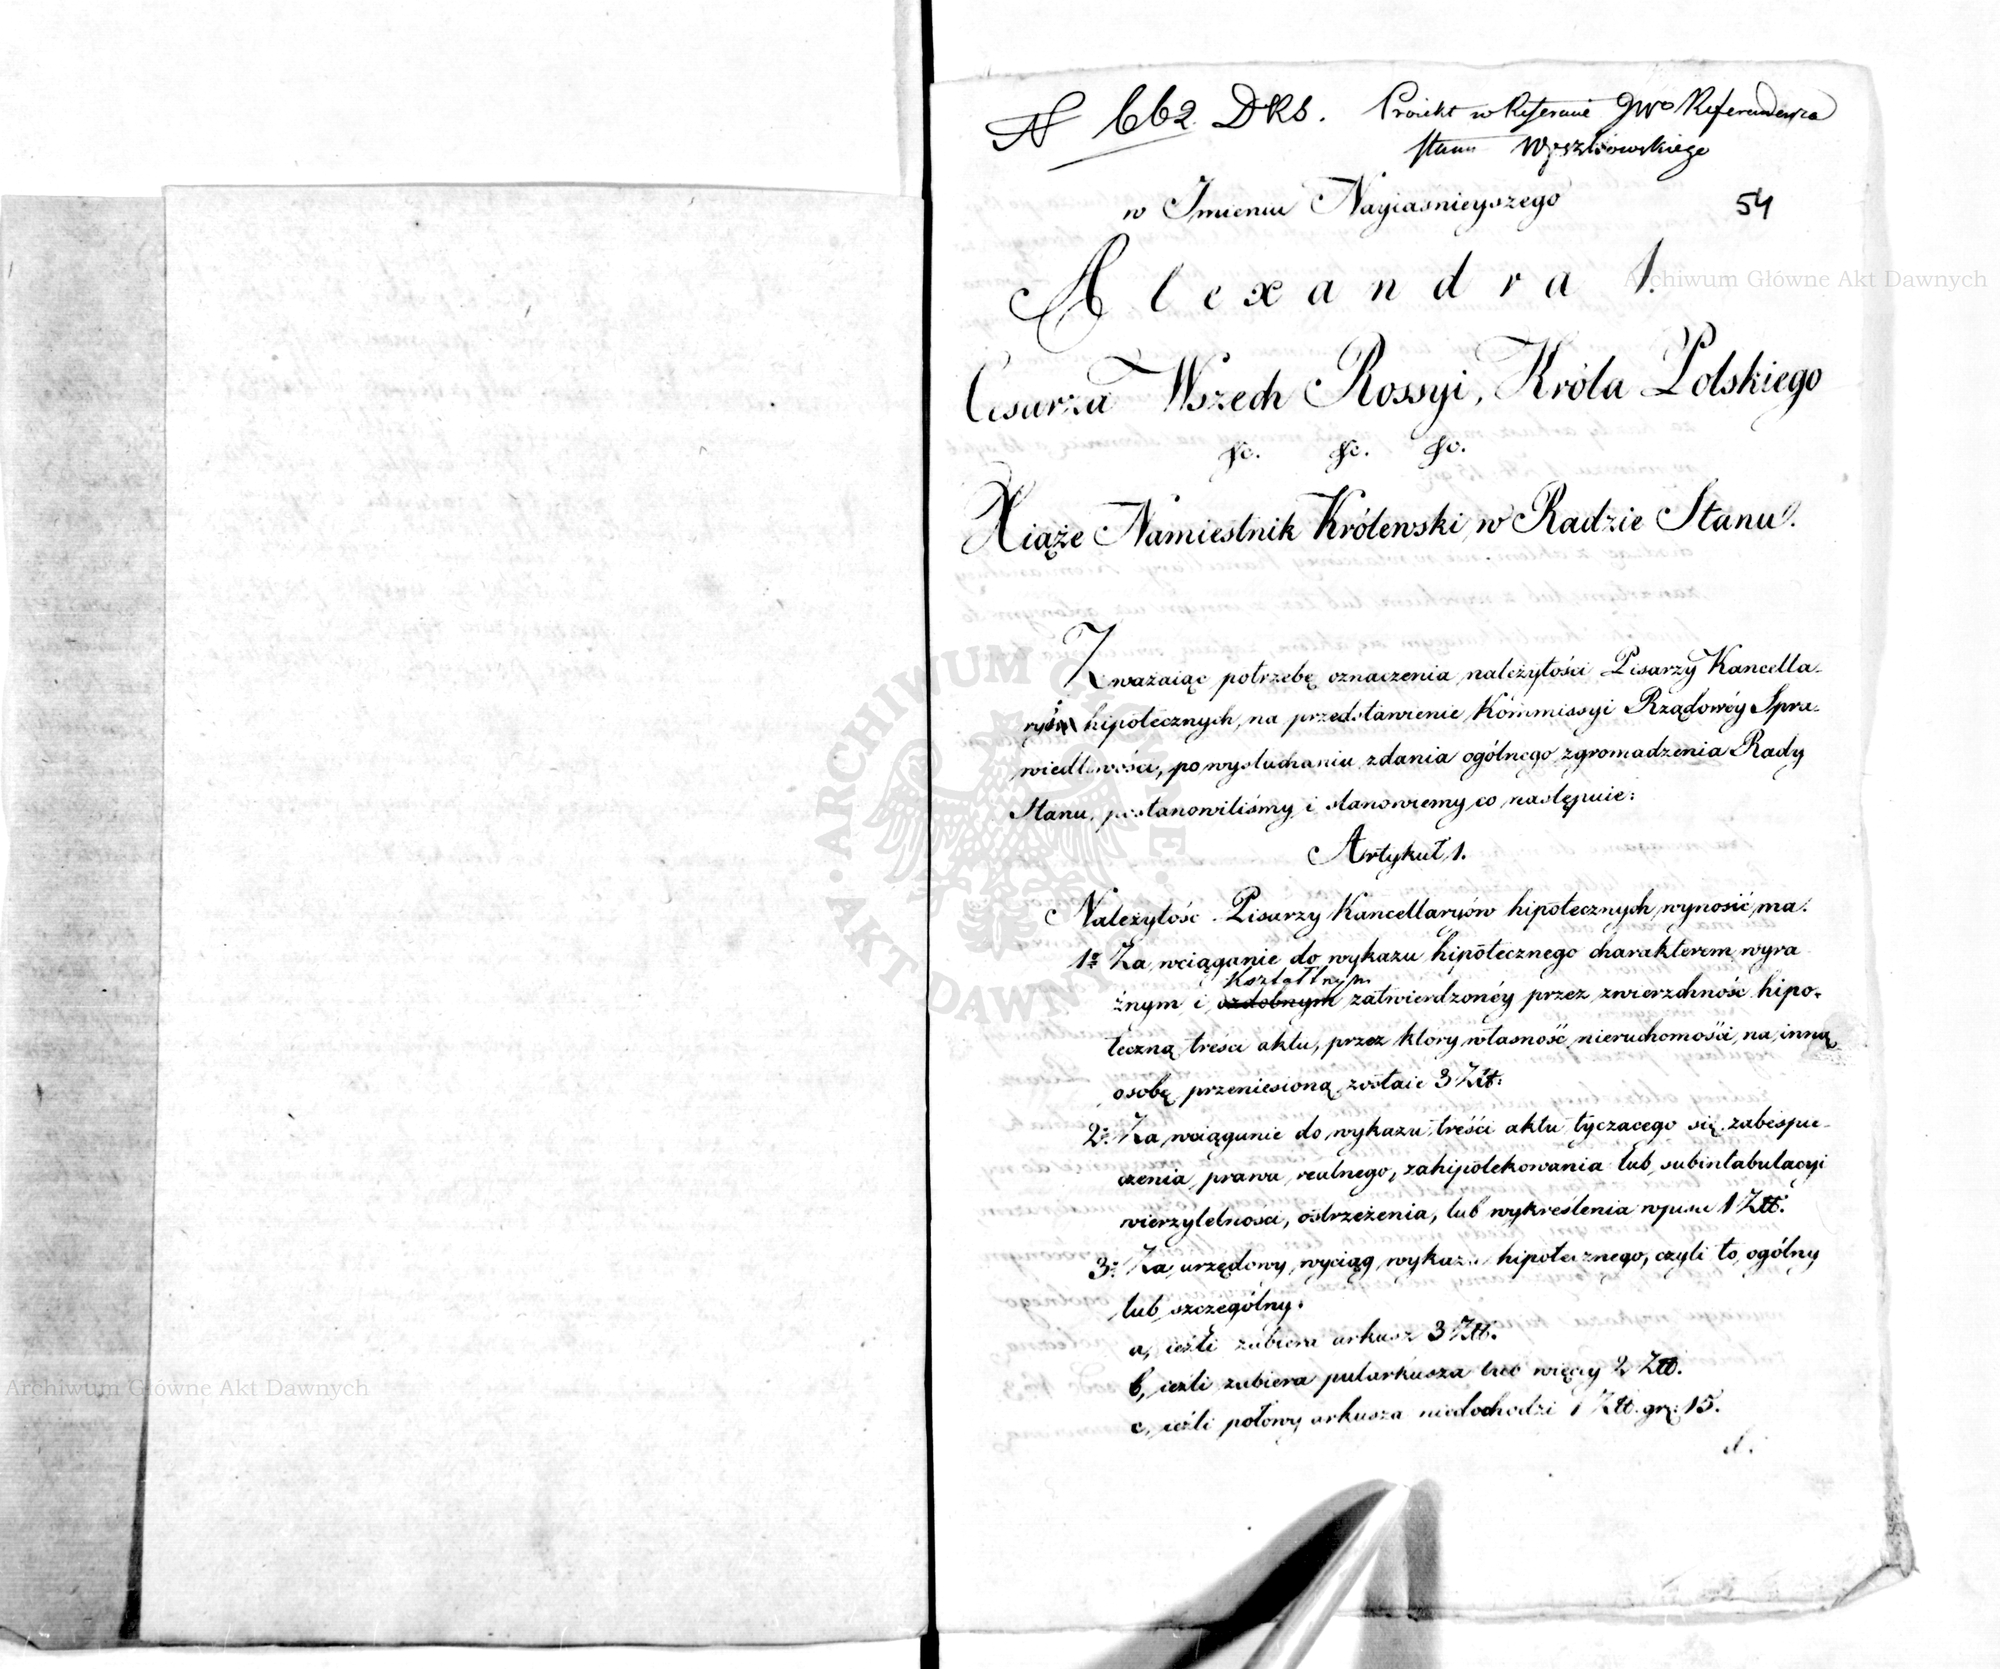 N 662 DRS. Proiekt w Referacie JWo Referendarza
Stanu Wyszkowskiego
54
w Imieniu Nayiasnieyszego
Alexandra 1.
Cesarza Wszech Rossyi, Króla Polskiego
&c. &c. &c.
Xiąże Namiestnik Królewski w Radzie Stanu.
Zważaiąc potrzebę oznaczenia należytości Pisarzy Kancella-
ryi hipotecznych, na przedstawienie Kommissyi Rządowéy Spra-
wiedliwości, po wysłuchaniu zdania ogólnego zgromadzenia Rady
Stanu, postanowiliśmy i stanowiemy co następuie:
Artykuł 1.
Należytość Pisarzy Kancellaryiów hipotecznych wynosić ma.
1º Za wciąganie do wykazu hipotecznego charakterem wyra
kształtnym
źnym i ozdobnym zatwierdzonéy przez zwierzchność hipo-
teczną treści aktu, przez ktory własność nieruchomości na inną
osobę przeniesioną zostaie 3 Złł:
2º Za wciąganie do wykazu treści aktu tyczacego się zabespie-
czenia prawa realnego, zahipotekowania lub subintabulacyi
wierzytelnosci, ostrzeżenia, lub wykreślenia wpisu 1 Złł:
3º Za urzędowy wyciąg wykazu hipotecznego, czyli to ogólny
lub szczególny.
a, ieźli zabiera arkusz 3 Złł.
b, ieźli zabiera pułarkusza lub więcéy 2 Złł.
c, ieźli połowy arkusza niedochodzi 1 Złł. gr: 15.
d.
Archiwum Główne Akt Dawnych
Archiwum Główne Akt Dawnych
ARCHIWUM GŁÓWNE AKT DAWNYCH